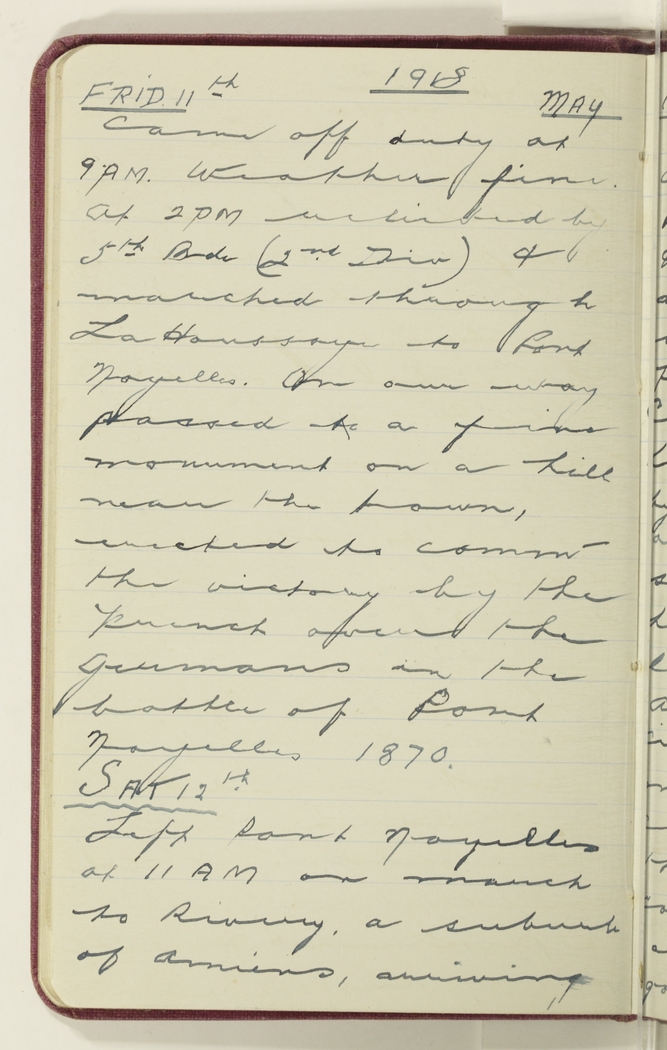 FRID. 11th 1918 MAY
Came off duty at
9 AM. Weather fine.
At 2 PM relieved by
5th Bde (2nd Div) &
marched through
La Houssaye to Pont
Noyelles. On our way
passed to a fine
monument on a hill
near the town,
erected to comm
the victory by the
French over the
Germans in the
battle of Pont
Noyelles 1870.
SAT 12th
Left Pont Noyelles
at 11 AM on march
to Rivery, a suburb
of Amiens, arriving